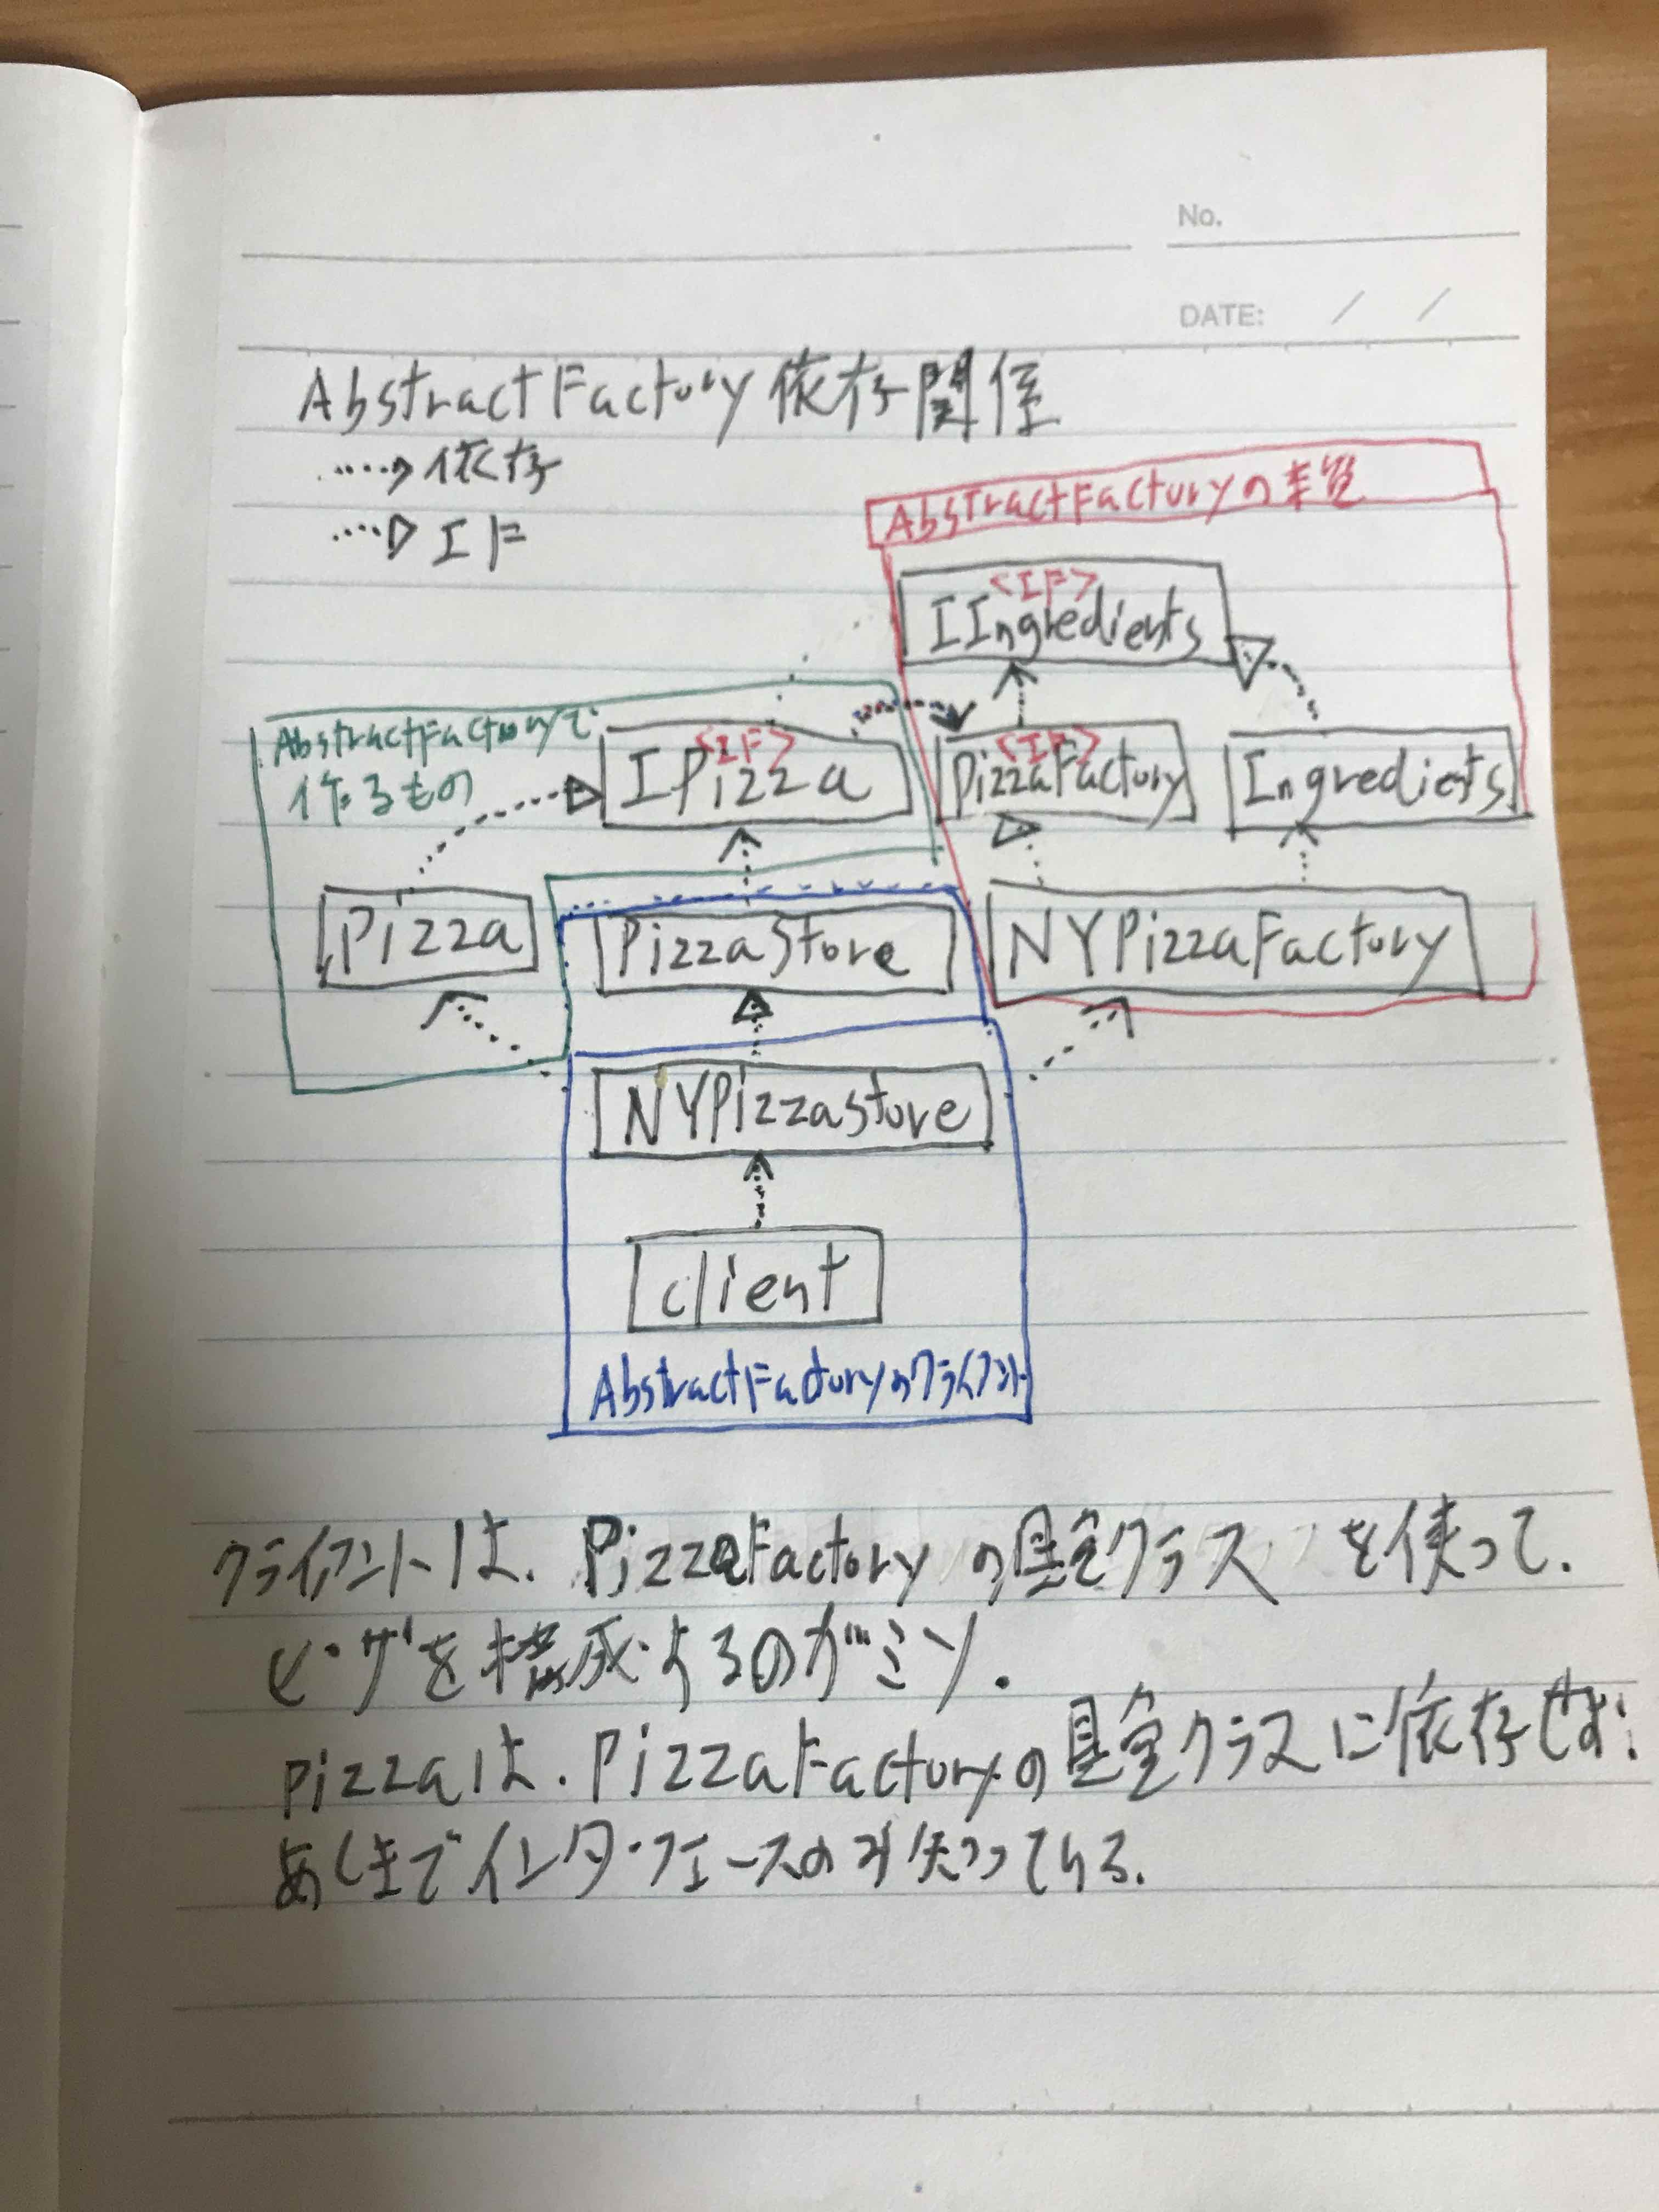 No.
DATE: / /
AbstractFactory 依存関係
····> 依存
····▷ IF
AbstractFactoryの本質
<IF>
IIngredients
AbstractFactoryで
作るもの
<IF>
IPizza
<IF>
PizzaFactory
Ingredients
Pizza
PizzaStore
NYPizzaFactory
NYPizzaStore
client
AbstractFactoryのクライアント
クライアントは、PizzaFactoryの具象クラスを使って、
ピザを構成するのがミソ.
Pizzaは、PizzaFactoryの具象クラスに依存せず、
あくまでインターフェースのみ知っている.